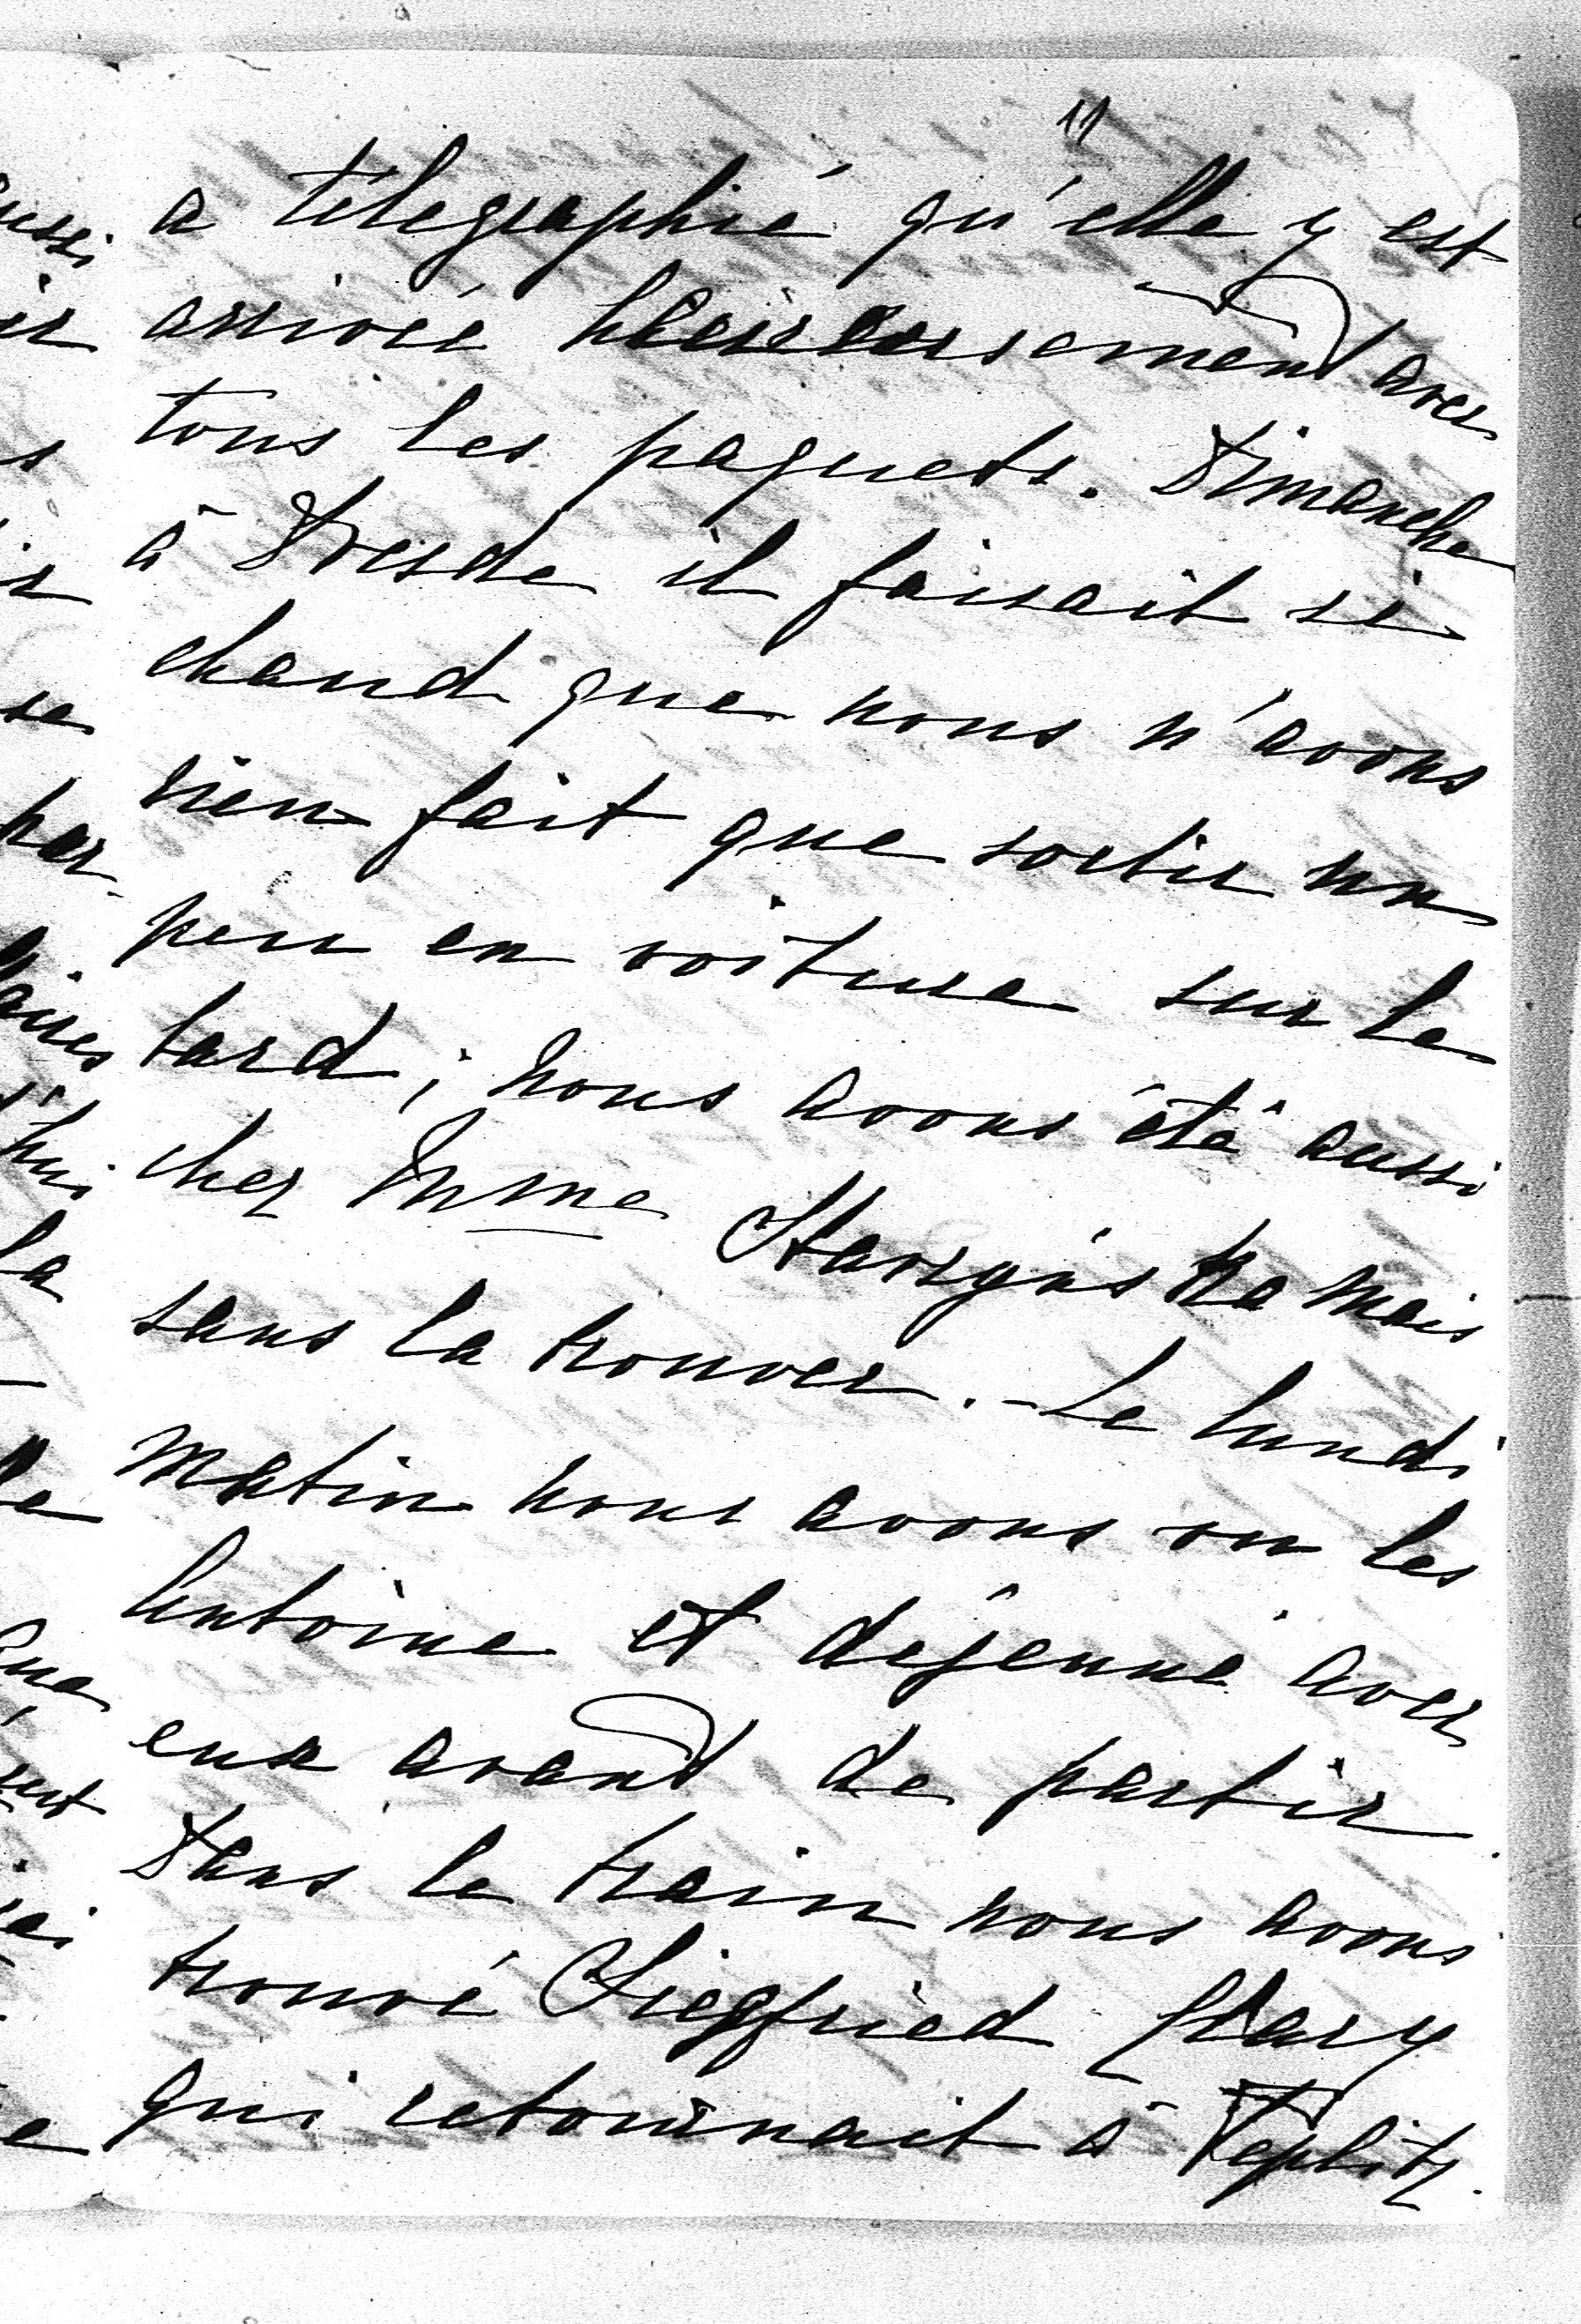 a télégraphié qu'elle y est
arrivée heureusement avec
tous les paquets. Dimanche
à Dresde il faisait si
chaud que nous n'avons
rien fait que sortir un
peu en voiture sur le
tard; nous avons été aussi
chez Mme mais
sans la trouver. - Le lundi
matin nous avons vu les
Antoine et déjeuné avec
eux avant de partir.
Dans le train nous avons
trouvé Siegfried Clary
qui retournait à Teplitz.